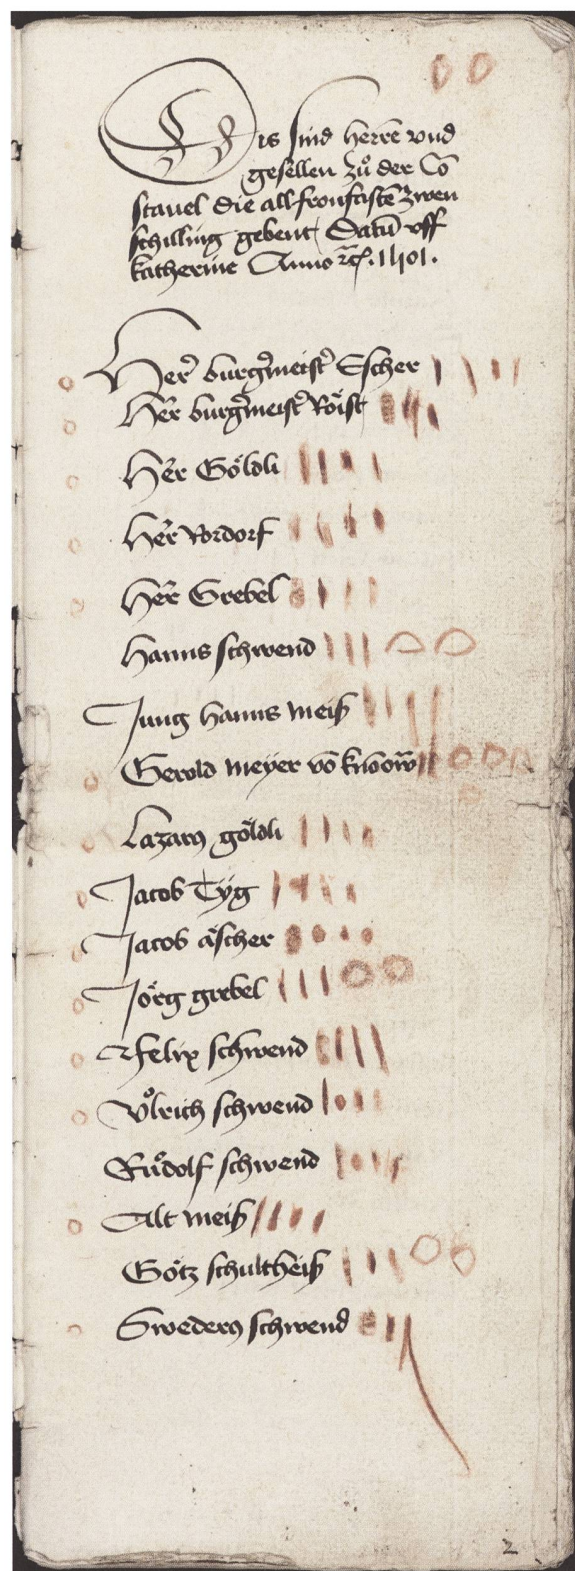 Dis sind herrẽ vnd
gesellen zů der Cõ
stauel die all fronfastẽ zwen
schilling gebent Datũ vff
katherine Anno
Her burgermeister Escher
Her burgermeister Röist
Her Göldli
Her Rordorf
Her Grebel
Hanns schwend
Jung hanns meiß
Gerold meyer võ knonow
Lazarus göldli
Jacob Tyg
Jacob äscher
Jörg grebel
Felix schwend
Vlrich schwend
Růdolf schwend
Alt meiß
Götz schultheiß
Swederus schwend
2